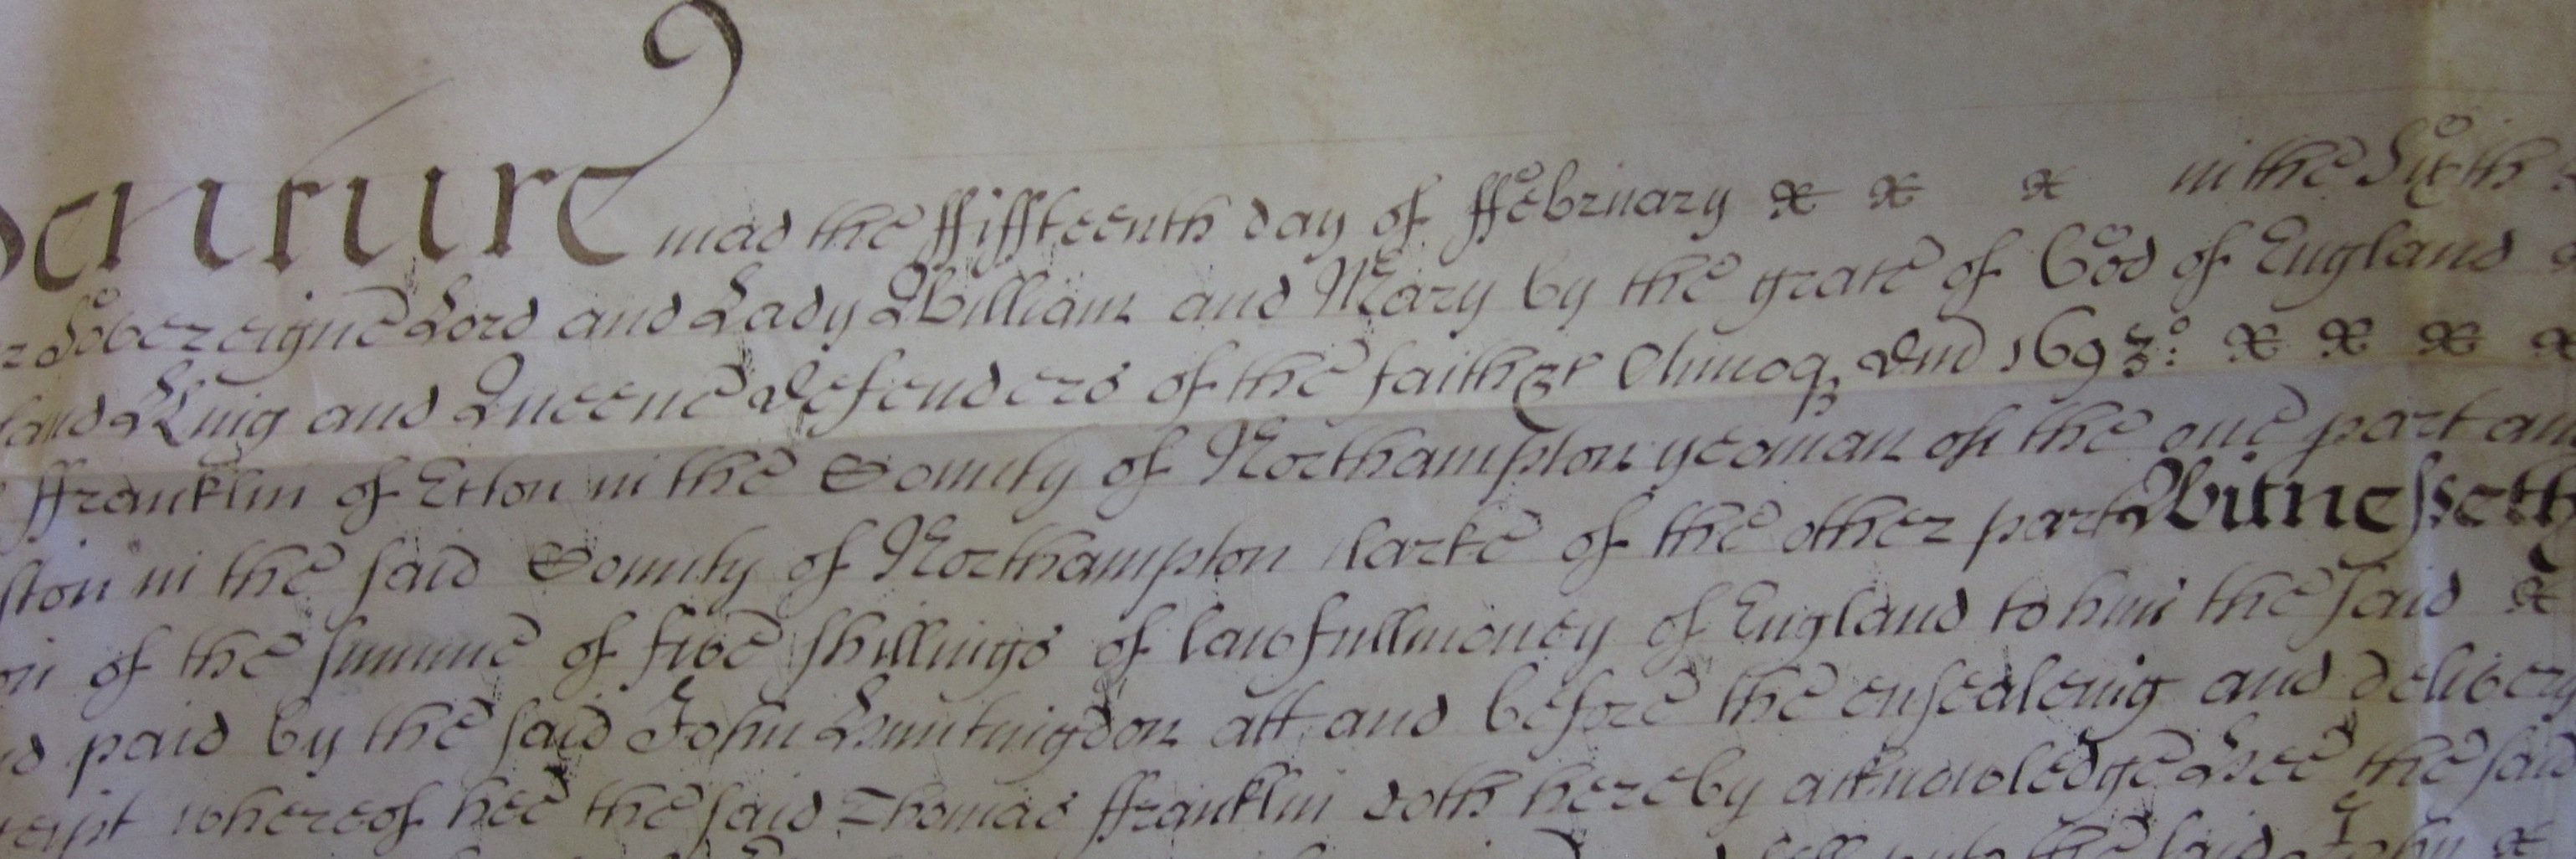 denture mad the ffiffteenth day of ffebruary & & & in the Sixth
Sovereigne Lord and Lady William and Mary by the grace of God of England
land King and Queene Defenders of the faith &c Annoq Dni 1693: & & & &
ffranklin of Etton in the County of Northampton yeoman of the one part an
ston in the said County of Northampton Clarke of the other part Witnesseth
on of the summe of five shillings of lawfull money of England to him the said &
d paid by the said John Huntingdon att and before the ensealeing and delivery
ceipt whereof hee the said Thomas ffranklin doth hereby acknowledge Hee the said
sell unto the said John &